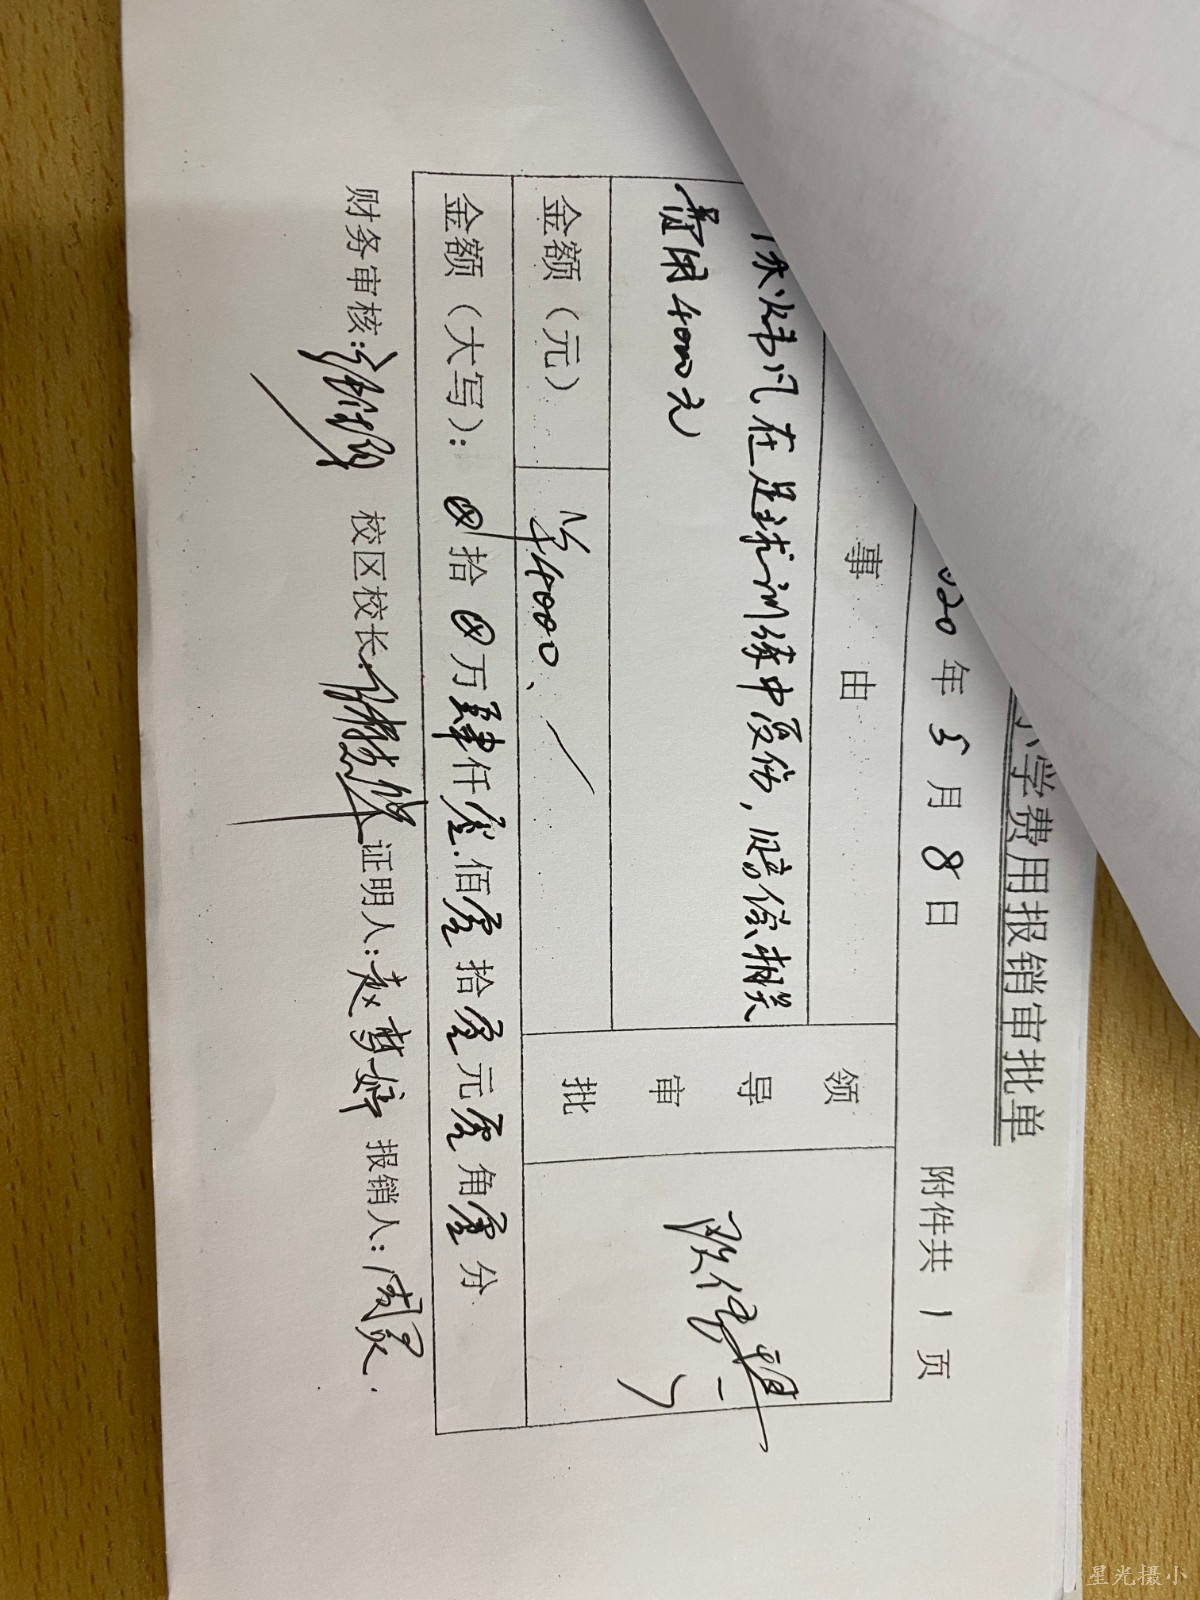 小学费用报销审批单
020年5月8日 附件共1页
事由
在足球训练中受伤，赔偿相关
费用4000元
领导审批
金额（元） ¥4000、
金额（大写）：⊗拾⊗万肆仟零佰零拾零元零角零分
财务审核： 校区校长： 证明人：赵梦婷 报销人：周灵
星光摄小